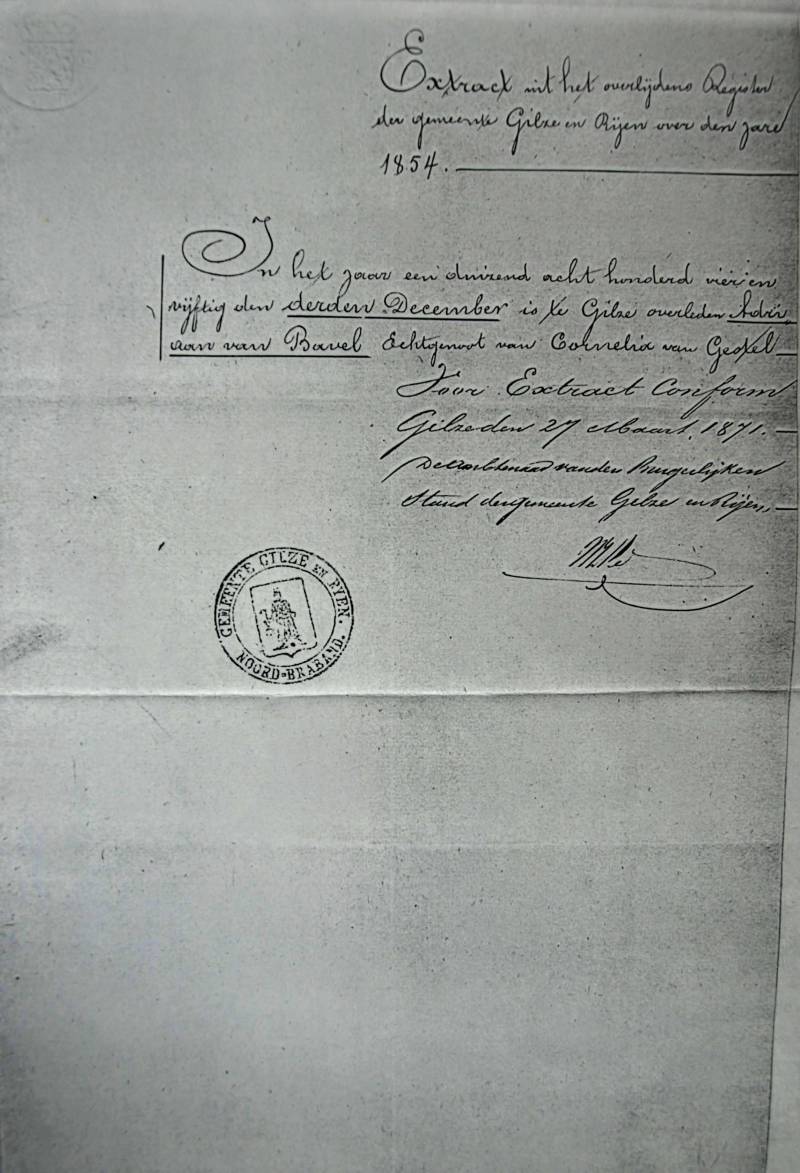 Extract uit het overlijdens Register
der gemeente Gilze en Rijen over den jare
1854.
In het jaar een duizend acht honderd vier en
vijftig den derden December is te Gilze overleden Adri
aan van Bavel Echtgenoot van Cornelia van Gestel
Voor Extract Conform
Gilze den 27 Maart 1871.
De Ambtenaar van den Burgerlijken
Stand der gemeente Gilze en Rijen,
GEMEENTE GILZE EN RYEN.
NOORD-BRABAND.